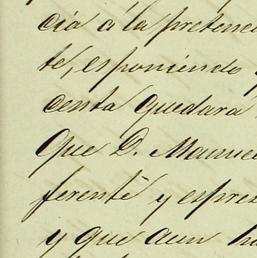 cia á la pretenc
te, esponiendo
centa quedará
que D. Manuel
ferente y espres
y que aun ha